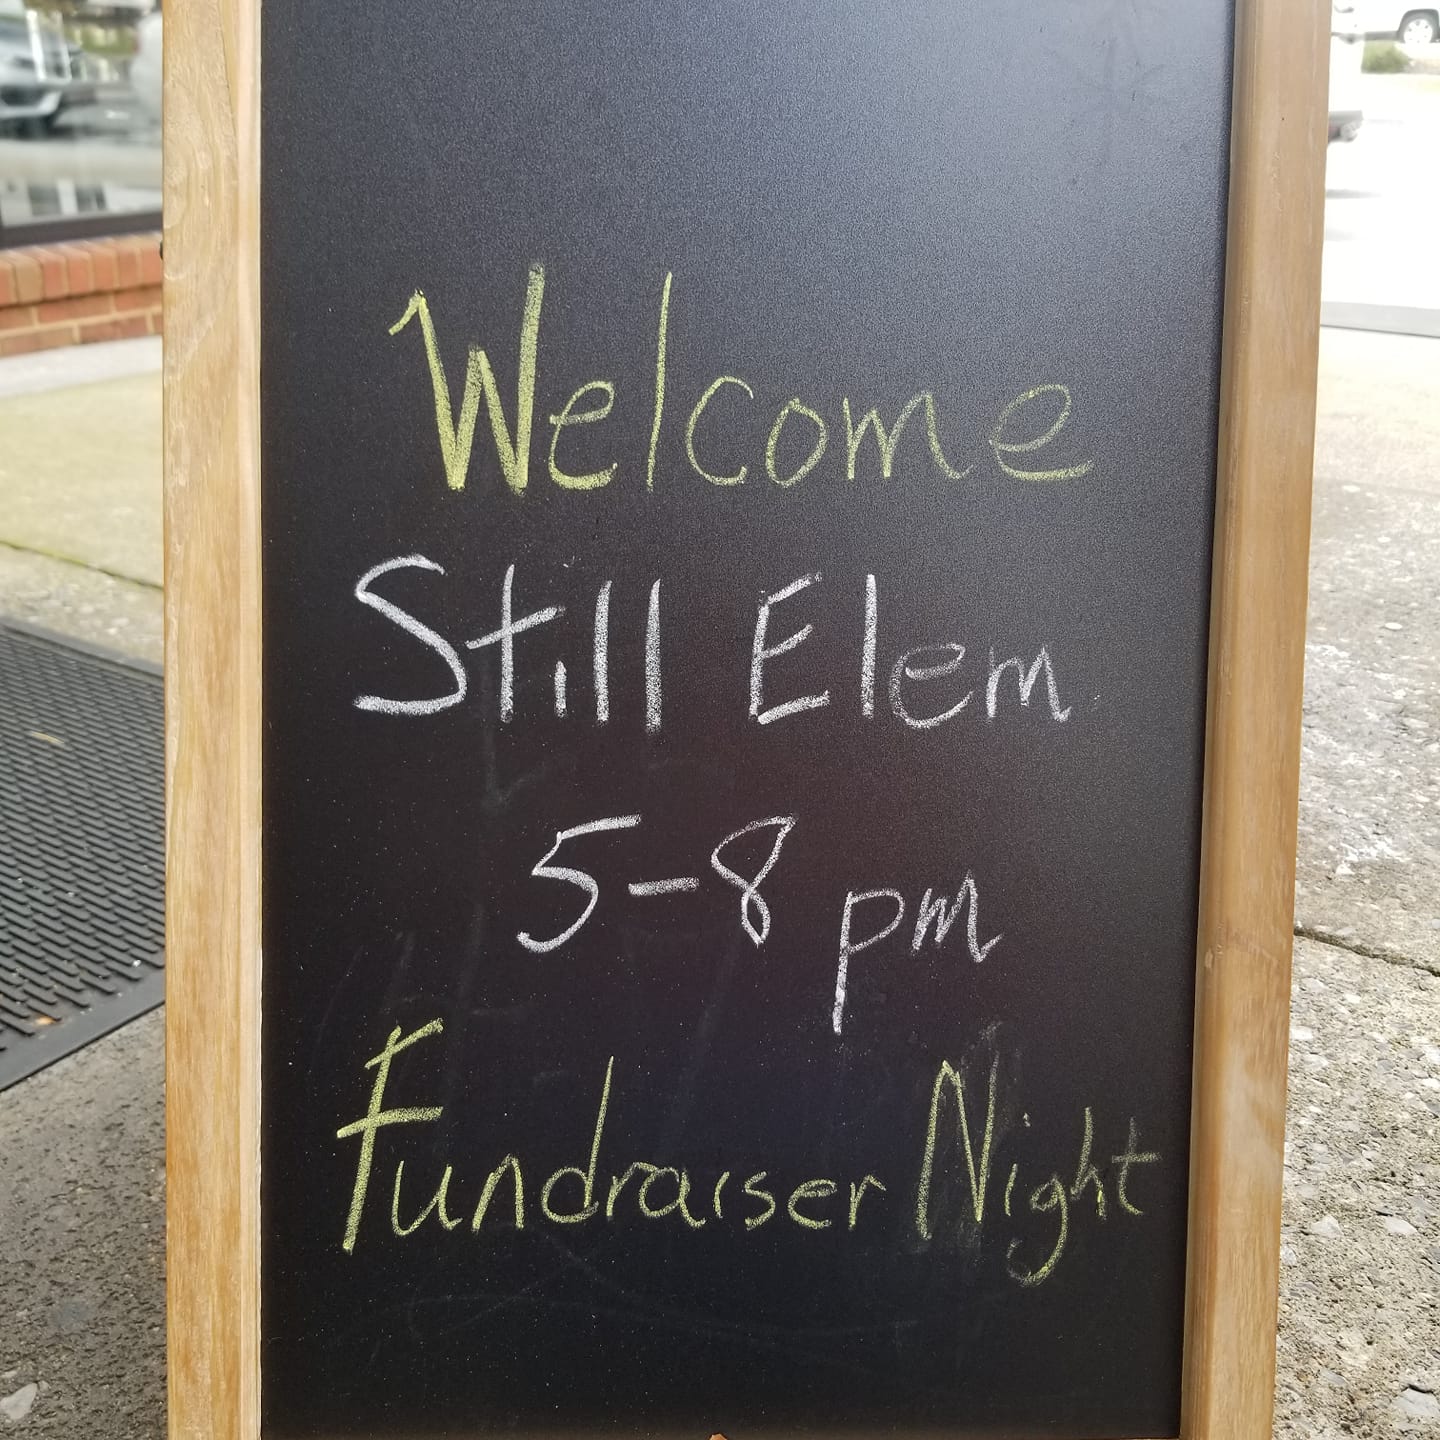 Welcome
Still Elem
5-8 pm
Fundraiser Night